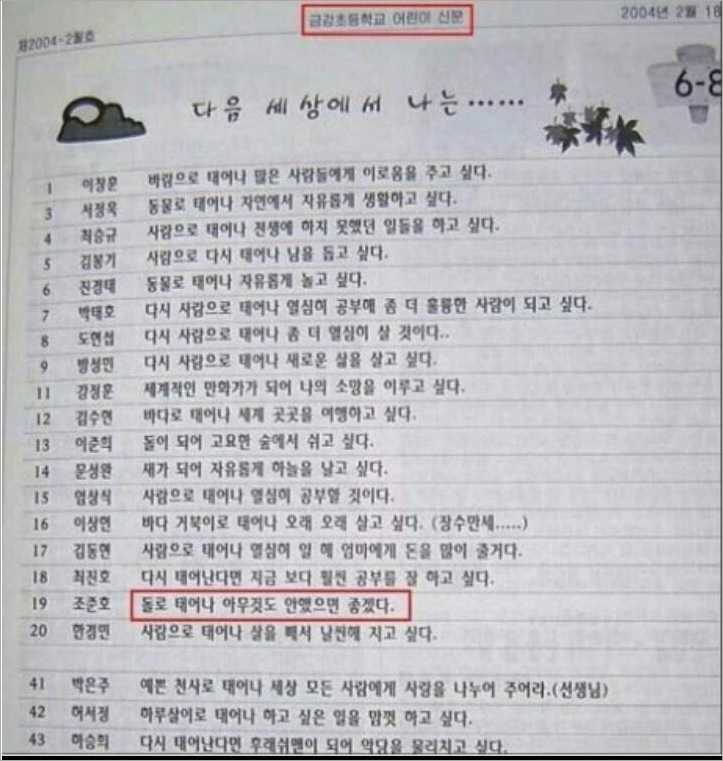 금강초등학교 어린이 신문
2004년 2월 18
제2004-2월호
6-8
다음 세상에서 나는……
1 이창훈 바람으로 태어나 많은 사람들에게 이로움을 주고 싶다.
3 서정욱 동물로 태어나 자연에서 자유롭게 생활하고 싶다.
4 최승규 사람으로 태어나 전생에 하지 못했던 일들을 하고 싶다.
5 김봉기 사람으로 다시 태어나 남을 돕고 싶다.
6 진경태 동물로 태어나 자유롭게 놀고 싶다.
7 박태호 다시 사람으로 태어나 열심히 공부해 좀 더 훌륭한 사람이 되고 싶다.
8 도현섭 다시 사람으로 태어나 좀 더 열심히 살 것이다..
9 방성민 다시 사람으로 태어나 새로운 삶을 살고 싶다.
11 강정훈 세계적인 만화가가 되어 나의 소망을 이루고 싶다.
12 김수현 바다로 태어나 세계 곳곳을 여행하고 싶다.
13 이준희 돌이 되어 고요한 숲에서 쉬고 싶다.
14 문성완 새가 되어 자유롭게 하늘을 날고 싶다.
15 엄상식 사람으로 태어나 열심히 공부할 것이다.
16 이상현 바다 거북이로 태어나 오래 오래 살고 싶다. (장수만세.....)
17 김동현 사람으로 태어나 열심히 일 해 엄마에게 돈을 많이 줄거다.
18 최진호 다시 태어난다면 지금 보다 훨씬 공부를 잘 하고 싶다.
19 조준호 돌로 태어나 아무것도 안했으면 좋겠다.
20 한경민 사람으로 태어나 살을 빼서 날씬해 지고 싶다.
41 박은주 예쁜 천사로 태어나 세상 모든 사람에게 사랑을 나누어 주어라.(선생님)
42 허서정 하루살이로 태어나 하고 싶은 일을 맘껏 하고 싶다.
43 하승희 다시 태어난다면 후래쉬맨이 되어 악당을 물리치고 싶다.